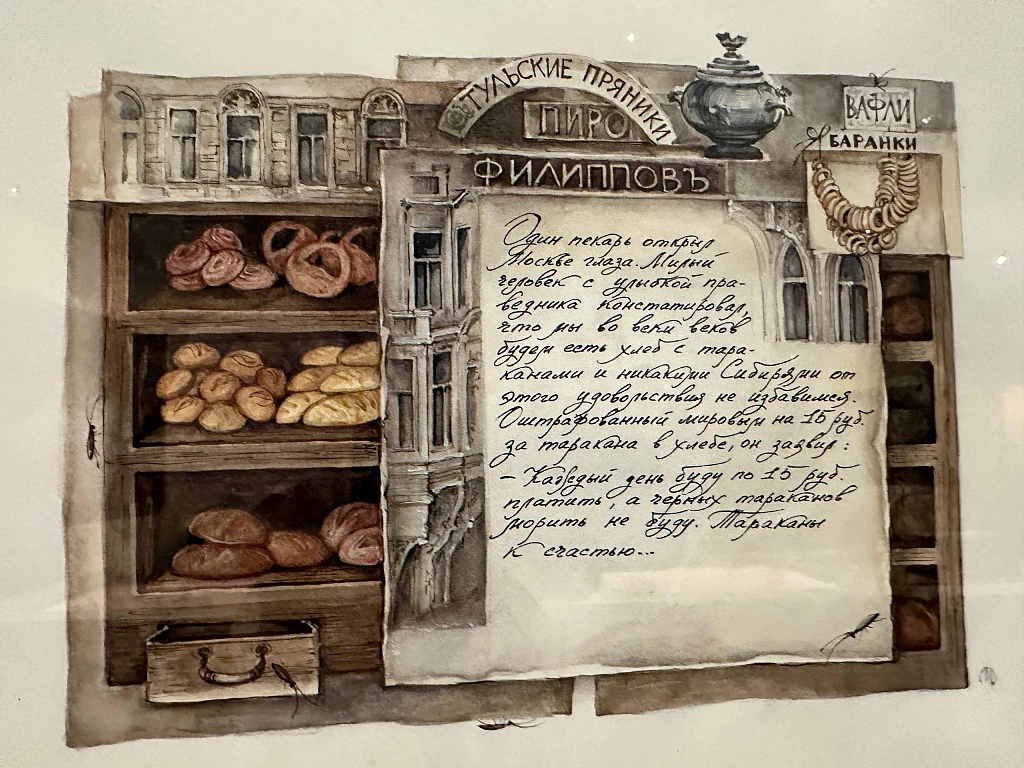 ТУЛЬСКИЕ ПРЯНИКИ
ПИРО
ВАФЛИ
БАРАНКИ
ФИЛИППОВЪ
Один пекарь открыл
Москве глаза. Милый
человек с улыбкой пра-
ведника констатировал,
что мы во веки веков
будем есть хлеб с тара-
канами и никакими Сибирями от
этого удовольствия не избавимся.
Оштрафованный мировым на 15 руб.
за таракана в хлебе, он заявил:
– Каждый день буду по 15 руб.
платить, а черных тараканов
морить не буду. Тараканы
к счастью...